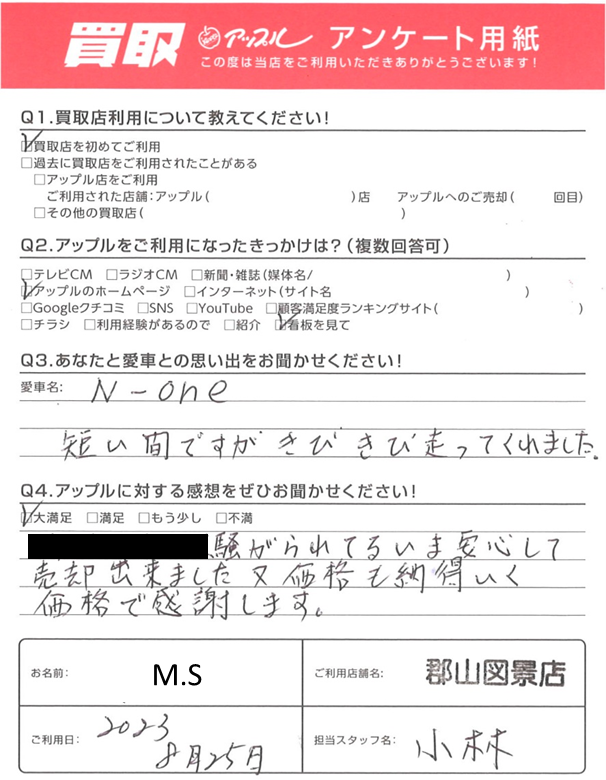 買取 アップル アンケート用紙
この度は当店をご利用いただきありがとうございます!
Q1.買取店利用について教えてください!
☑買取店を初めてご利用
□過去に買取店をご利用されたことがある
□アップル店をご利用
ご利用された店舗:アップル( )店 アップルへのご売却( 回目)
□その他の買取店( )
Q2.アップルをご利用になったきっかけは?(複数回答可)
□テレビCM □ラジオCM □新聞・雑誌(媒体名/ )
☑アップルのホームページ □インターネット(サイト名 )
□Googleクチコミ □SNS □YouTube □顧客満足度ランキングサイト( )
□チラシ □利用経験があるので □紹介 ☑看板を見て
Q3.あなたと愛車との思い出をお聞かせください!
愛車名: N-one
短い間ですが きびきび走ってくれました。
Q4.アップルに対する感想をぜひお聞かせください!
☑大満足 □満足 □もう少し □不満
騒がられてるいま安心して
売却出来ました又価格も納得いく
価格で感謝します。
お名前: M.S ご利用店舗名: 郡山図景店
ご利用日: 2023 8月25日 担当スタッフ名: 小林